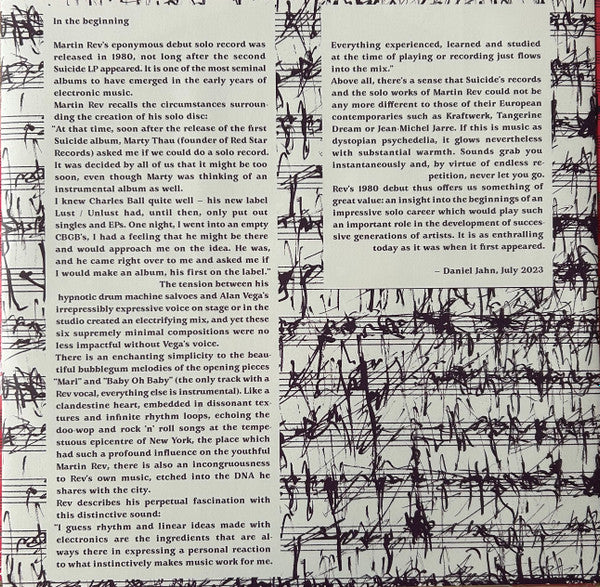 In the beginning
Martin Rev's eponymous debut solo record was
released in 1980, not long after the second
Suicide LP appeared. It is one of the most seminal
albums to have emerged in the early years of
electronic music.
Martin Rev recalls the circumstances surroun-
ding the creation of his solo disc:
"At that time, soon after the release of the first
Suicide album, Marty Thau (founder of Red Star
Records) asked me if we could do a solo record.
It was decided by all of us that it might be too
soon, even though Marty was thinking of an
instrumental album as well.
I knew Charles Ball quite well – his new label
Lust / Unlust had, until then, only put out
singles and EPs. One night, I went into an empty
CBGB's, I had a feeling that he might be there
and would approach me on the idea. He was,
and he came right over to me and asked me if
I would make an album, his first on the label."
The tension between his
hypnotic drum machine salvoes and Alan Vega's
irrepressibly expressive voice on stage or in the
studio created an electrifying mix, and yet these
six supremely minimal compositions were no
less impactful without Vega's voice.
There is an enchanting simplicity to the beau-
tiful bubblegum melodies of the opening pieces
"Mari" and "Baby Oh Baby" (the only track with a
Rev vocal, everything else is instrumental). Like a
clandestine heart, embedded in dissonant tex-
tures and infinite rhythm loops, echoing the
doo-wop and rock 'n' roll songs at the tempe-
stuous epicentre of New York, the place which
had such a profound influence on the youthful
Martin Rev, there is also an incongruousness
to Rev's own music, etched into the DNA he
shares with the city.
Rev describes his perpetual fascination with
this distinctive sound:
"I guess rhythm and linear ideas made with
electronics are the ingredients that are al-
ways there in expressing a personal reaction
to what instinctively makes music work for me.
Everything experienced, learned and studied
at the time of playing or recording just flows
into the mix."
Above all, there's a sense that Suicide's records
and the solo works of Martin Rev could not be
any more different to those of their European
contemporaries such as Kraftwerk, Tangerine
Dream or Jean-Michel Jarre. If this is music as
dystopian psychedelia, it glows nevertheless
with substantial warmth. Sounds grab you
instantaneously and, by virtue of endless re-
petition, never let you go.
Rev's 1980 debut thus offers us something of
great value: an insight into the beginnings of an
impressive solo career which would play such
an important role in the development of succes-
sive generations of artists. It is as enthralling
today as it was when it first appeared.
– Daniel Jahn, July 2023